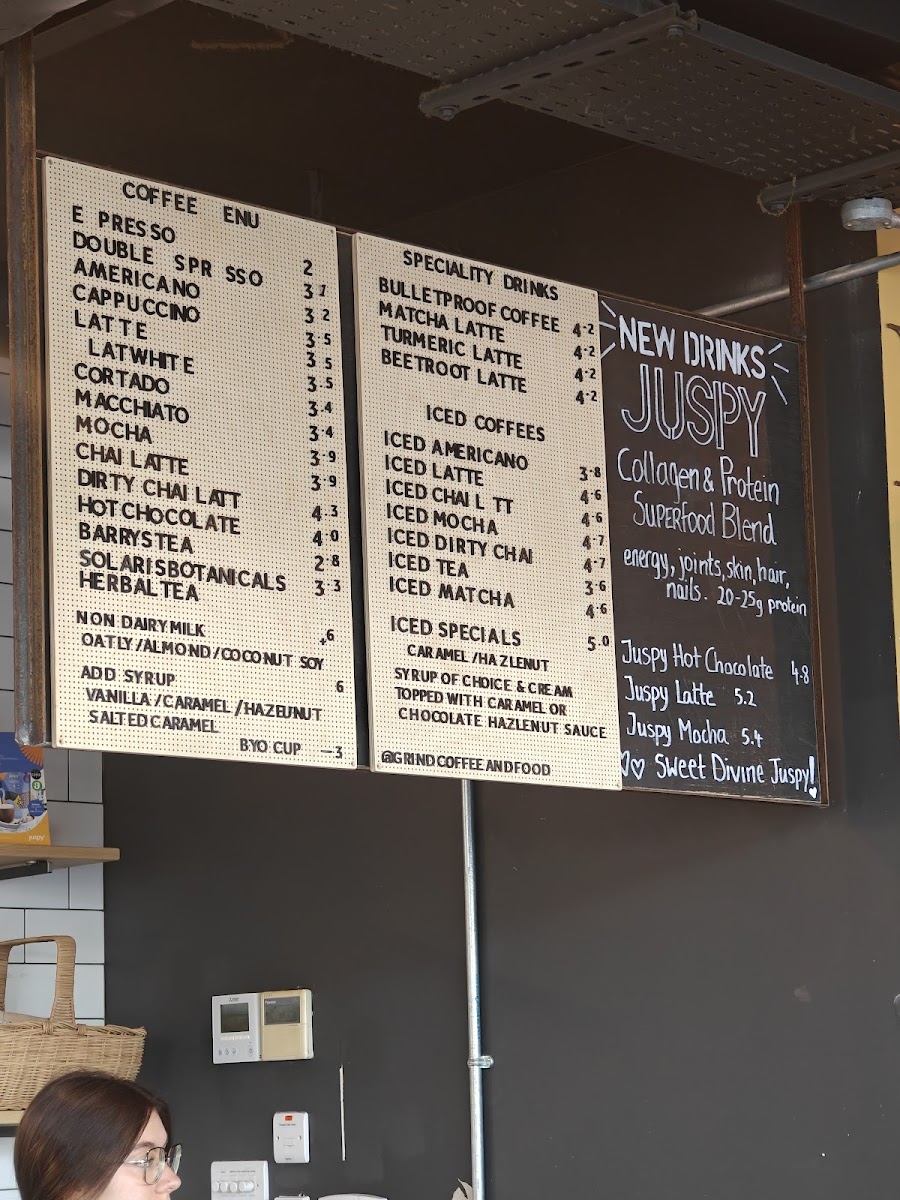 COFFEE ENU
E PRESSO 2
DOUBLE SPR SSO 3 1
AMERICANO 3 2
CAPPUCCINO 3 5
LATTE 3 5
LATWHITE 3 5
CORTADO 3.4
MACCHIATO 3.4
MOCHA 3.9
CHAI LATTE 3.9
DIRTY CHAI LATT 4.3
HOT CHOCOLATE 4.0
BARRYS TEA 2.8
SOLARIS BOTANICALS 3.3
HERBAL TEA
NON DAIRY MILK +6
OATLY/ALMOND/COCONUT SOY
ADD SYRUP 6
VANILLA/CARAMEL/HAZELNUT
SALTED CARAMEL
BYO CUP –3
SPECIALITY DRINKS
BULLETPROOF COFFEE 4.2
MATCHA LATTE 4.2
TURMERIC LATTE 4.2
BEETROOT LATTE 4.2
ICED COFFEES
ICED AMERICANO 3.8
ICED LATTE 4.6
ICED CHAI L TT 4.6
ICED MOCHA 4.7
ICED DIRTY CHAI 4.7
ICED TEA 3.6
ICED MATCHA 4.6
ICED SPECIALS 5.0
CARAMEL/HAZLENUT
SYRUP OF CHOICE & CREAM
TOPPED WITH CARAMEL OR
CHOCOLATE HAZLENUT SAUCE
@GRINDCOFFEEANDFOOD
NEW DRINKS
JUSPY
Collagen & Protein
SUPERFOOD Blend
energy, joints, skin, hair,
nails. 20-25g protein
Juspy Hot Chocolate 4.8
Juspy Latte 5.2
Juspy Mocha 5.4
♡♡ Sweet Divine Juspy!